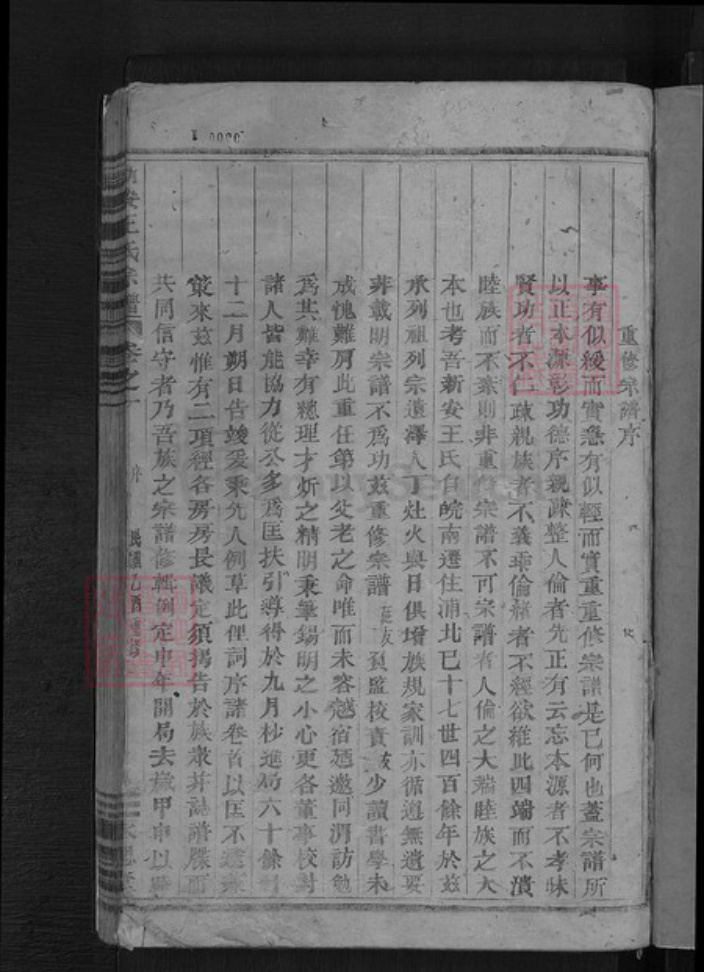 重修宗譜序
事有似緩而實急有似輕而實重重修宗譜是已何也蓋宗譜所
以正本源彰功德序親疎整人倫者先正有云忘本源者不孝昧
賢功者不仁疎親族者不義乖倫緒者不經欲維此四端而不潰
睦族而不紊則非重修宗譜不可宗譜者人倫之大端睦族之大
本也考吾新安王氏自皖南遷住浦北已十七世四百餘年於茲
承列祖列宗遺澤人丁灶火與日俱增族規家訓亦循遵無遺要
非載明宗譜不爲功茲重修宗譜 友負監校責 少讀書學未
成愧難肩此重任第以父老之命唯而未容越宿廼邀同渭訪勉
爲其難幸有總理才炘之精明秉筆錫明之小心更各董事校對
諸人皆能協力從公多爲匡扶引導得於九月杪進局六十餘
十二月朔日告竣爰乘先人例草此俚詞序諸卷首以匡不逮
策來茲惟有二項經各房房長議定須揭告於族衆并誌譜牒而
共同信守者乃吾族之宗譜修輯例定申年開局去歲甲申以
新安王氏宗譜 卷之一 序 民國乙酉重修